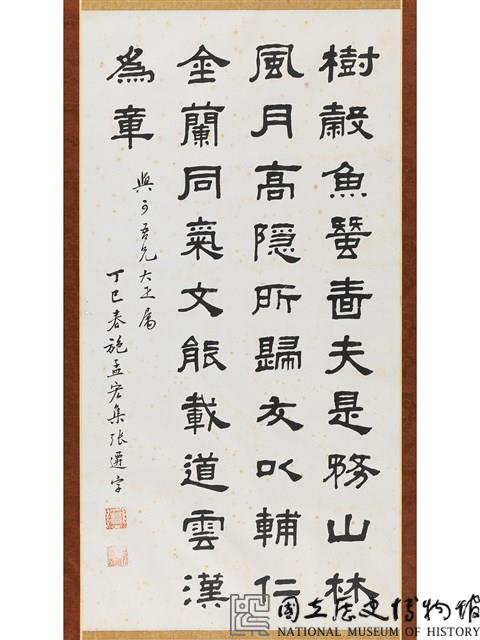 樹穀魚蜑嗇夫是務山林
風月高隱所歸友以輔仁
金蘭同氣文能載道雲漢
為章
與可吾兄大正屬
丁巳春施孟宏集張遷字
國立歷史博物館
NATIONAL MUSEUM OF HISTORY